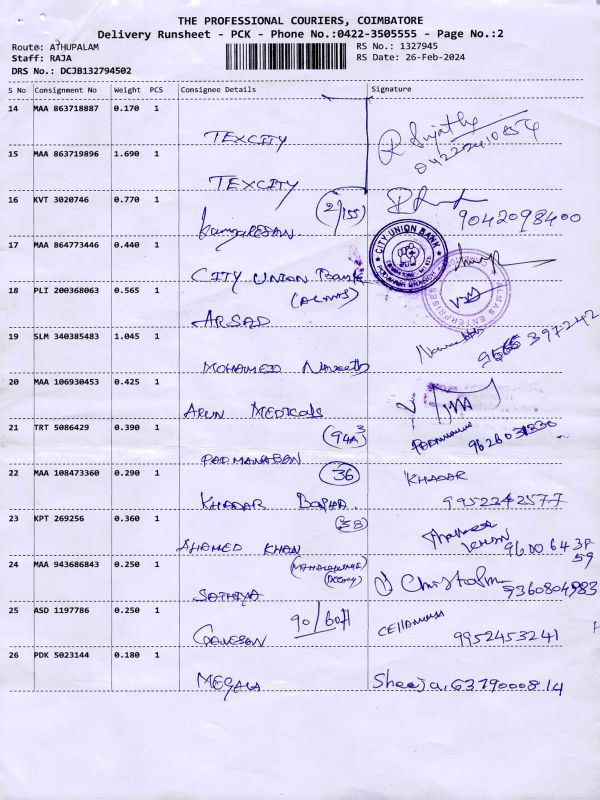 THE PROFESSIONAL COURIERS, COIMBATORE
Delivery Runsheet - PCK - Phone No.:0422-3505555 - Page No.:2
Route: ATHUPALAM
RS No.: 1327945
Staff: RAJA
RS Date: 26-Feb-2024
DRS No.: DCJB132794502
S No Consignment No Weight PCS Consignee Details Signature
14 MAA 863718887 0.170 1
TEXCITY
15 MAA 863719896 1.690 1
TEXCITY
16 KVT 3020746 0.770 1
2/155
9042098400
17 MAA 864773446 0.440 1
CITY UNION BANK
CITY UNION Bank
18 PLI 200368063 0.565 1
ARSAD
19 SLM 340385483 1.045 1
MOHAMED
20 MAA 106930453 0.425 1
ARUN MEDICALS
21 TRT 5086429 0.390 1
PADMANABAN
22 MAA 108473360 0.290 1
36
KHADAR
KHADAR
9952342577
23 KPT 269256 0.360 1
AHAMED KHAN
24 MAA 943686843 0.250 1
SATHIYA
9360804983
25 ASD 1197786 0.250 1
GANESAN
9952453241
26 PDK 5023144 0.180 1
MEGALA
Sheeja, 6379000814